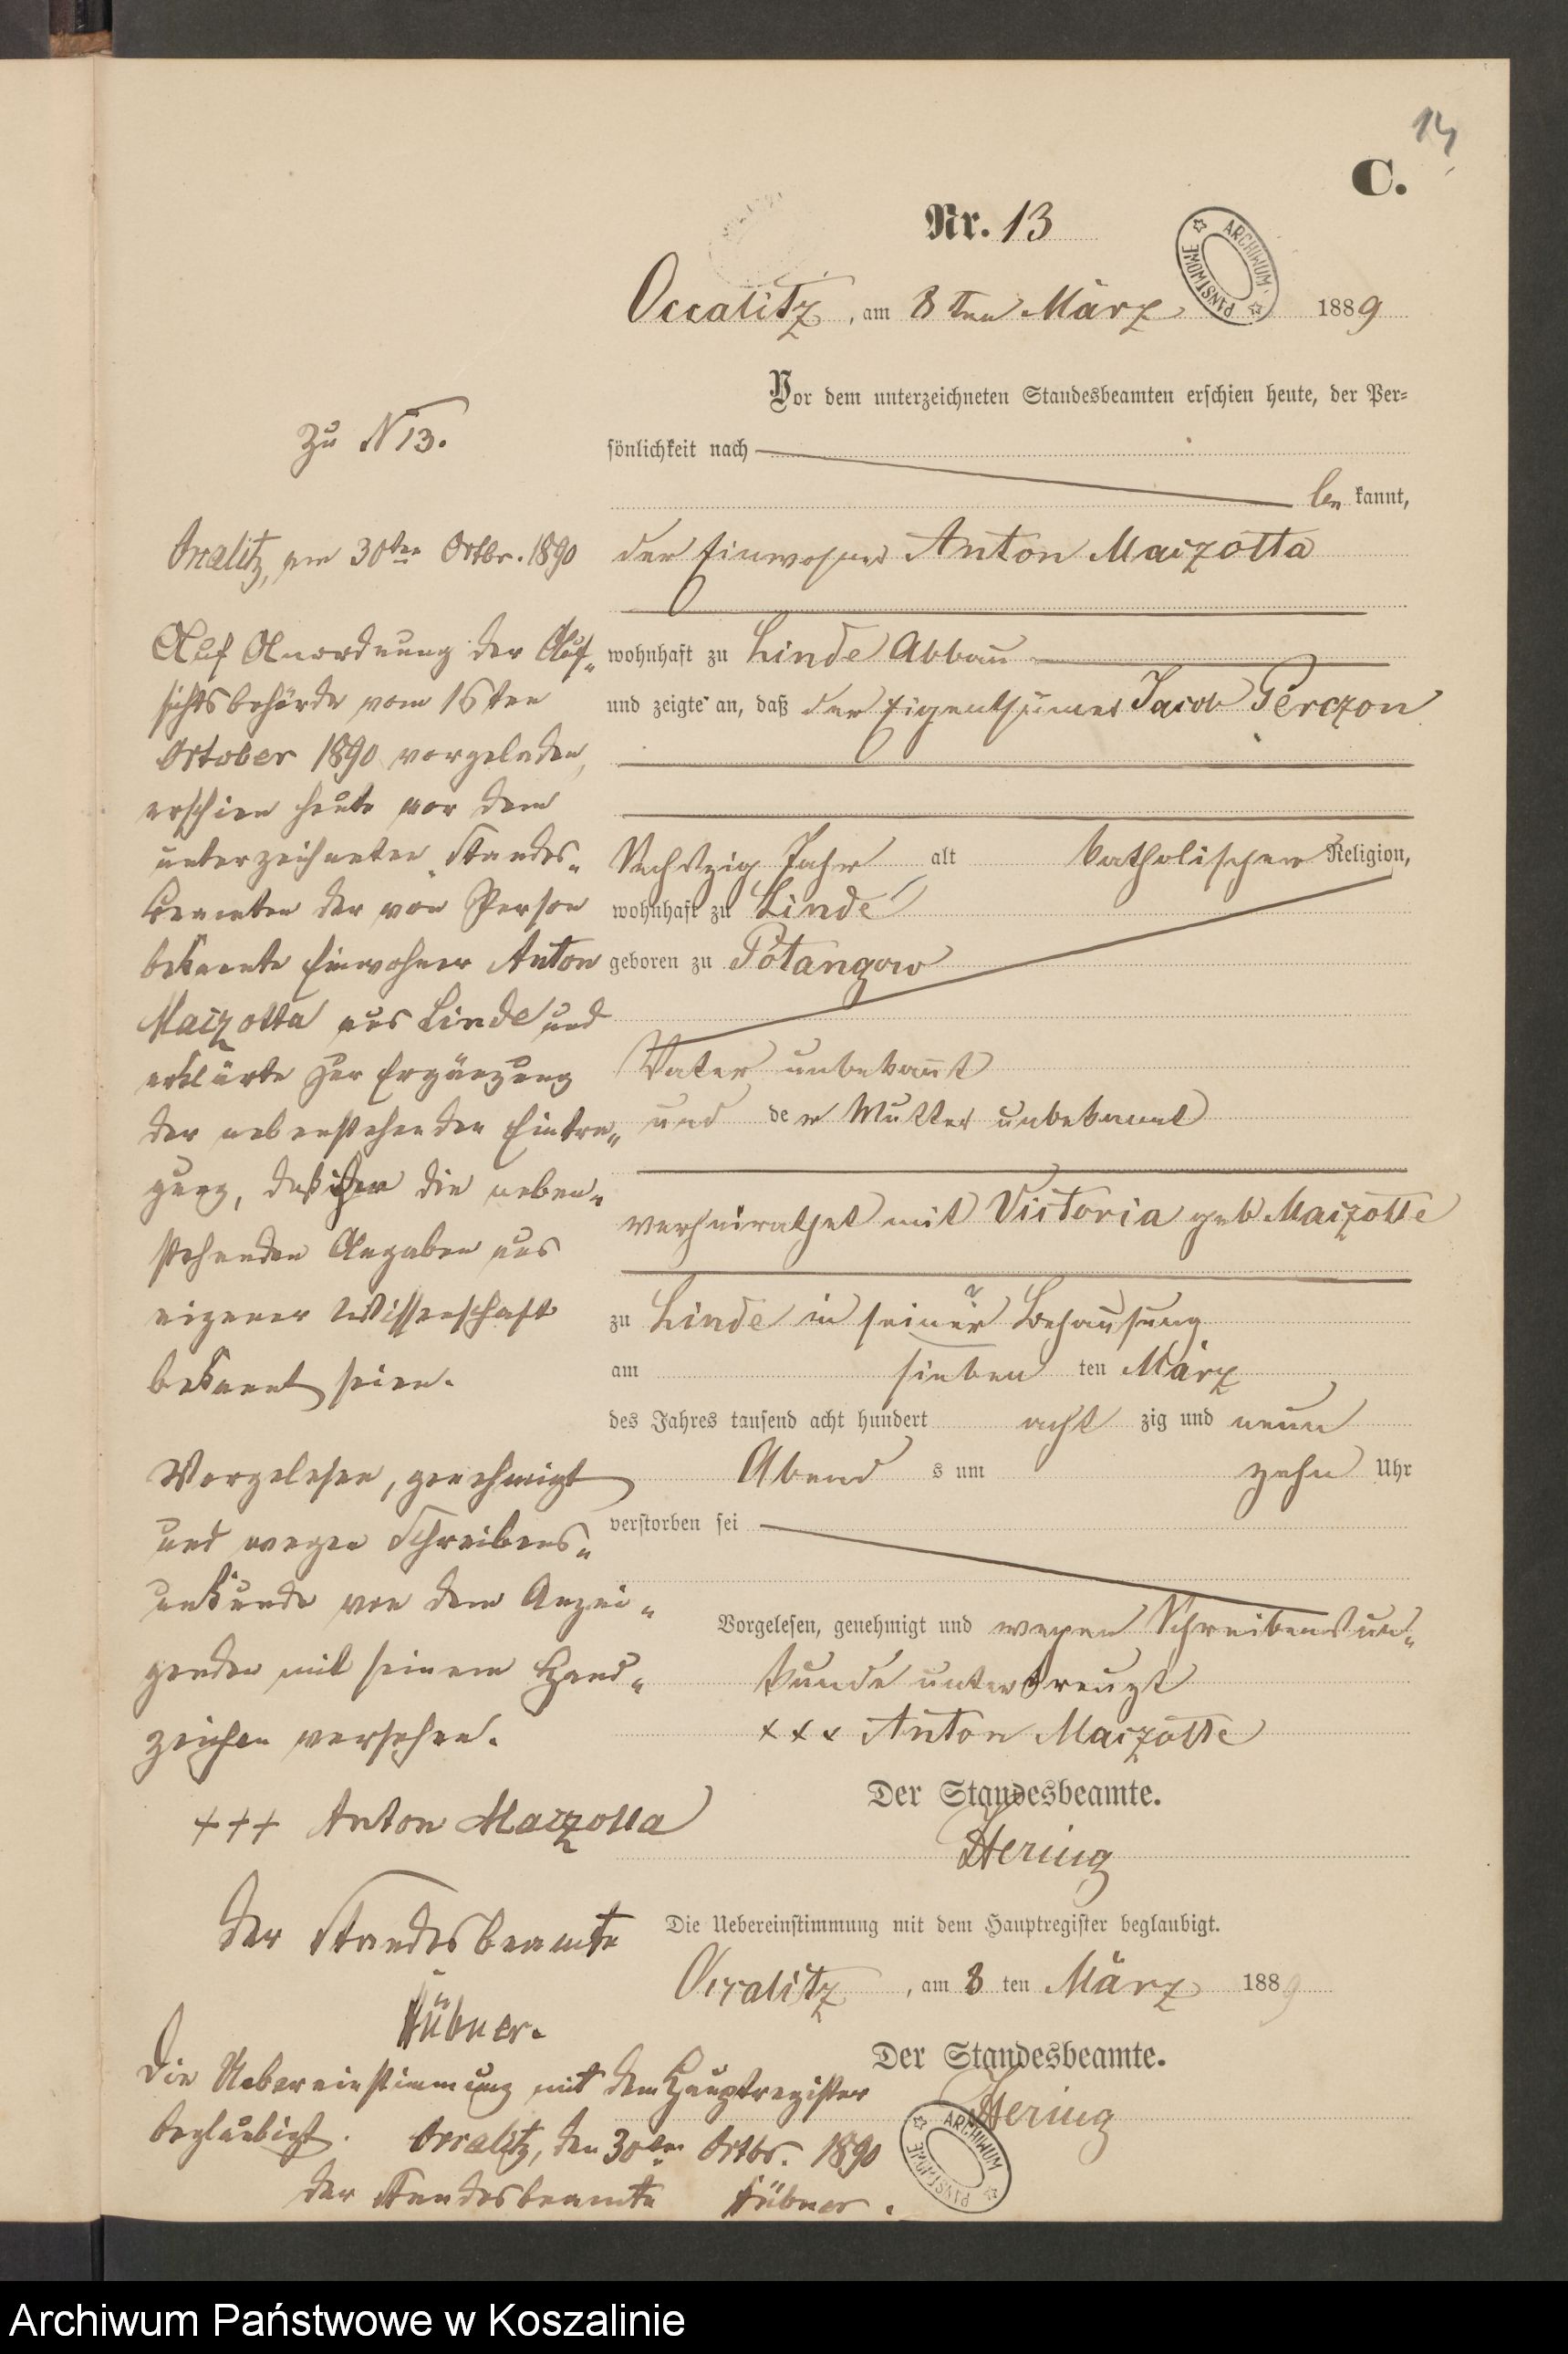 14
C.
Nr. 13
ARCHIWUM PAŃSTWOWE
Occalitz, am 8 ten März 1889
Vor dem unterzeichneten Standesbeamten erschien heute, der Per-
sönlichkeit nach
be kannt,
der Einwohner Anton Maizotta
wohnhaft zu Linde Abbau
und zeigte an, daß der Eigenthümer Jacob Perczon
Sechszig Jahr alt katholischer Religion,
wohnhaft zu Linde
geboren zu Potangow
Vater unbekannt
und der Mutter unbekannt
verheirathet mit Victoria geb Maizotte
zu Linde in seiner Behausung
am sieben ten März
des Jahres tausend acht hundert acht zig und neun
Abend s um zehn Uhr
verstorben sei
Vorgelesen, genehmigt und wegen Schreibensun-
kunde unterkreuzt
+++ Anton Maizotte
Der Standesbeamte.
Hering
Die Uebereinstimmung mit dem Hauptregister beglaubigt.
Occalitz, am 8 ten März 1889
Der Standesbeamte.
Hering
ARCHIWUM PAŃSTWOWE
Zu N 13.
Occalitz, am 30ten Octbr. 1890
Auf Anordnung der Auf-
sichtsbehörde vom 16ten
October 1890 vorgeladen,
erschien heute vor dem
unterzeichneten Standes-
beamten der von Person
bekannte Einwohner Anton
Maizotta aus Linde und
erklärte zur Ergänzung
der nebenstehenden Eintra-
gung, daß ihm die neben-
stehenden Angaben aus
eigener Wissenschaft
bekannt seien.
Vorgelesen, genehmigt
und wegen Schreibens-
unkunde von dem Anzei-
genden mit seinem Hand-
zeichen versehen.
+++ Anton Maizotta
Der Standesbeamte
Hübner.
Die Uebereinstimmung mit dem Hauptregister
beglaubigt. Occalitz, den 30ten Octbr. 1890
Der Standesbeamte Hübner.
Archiwum Państwowe w Koszalinie